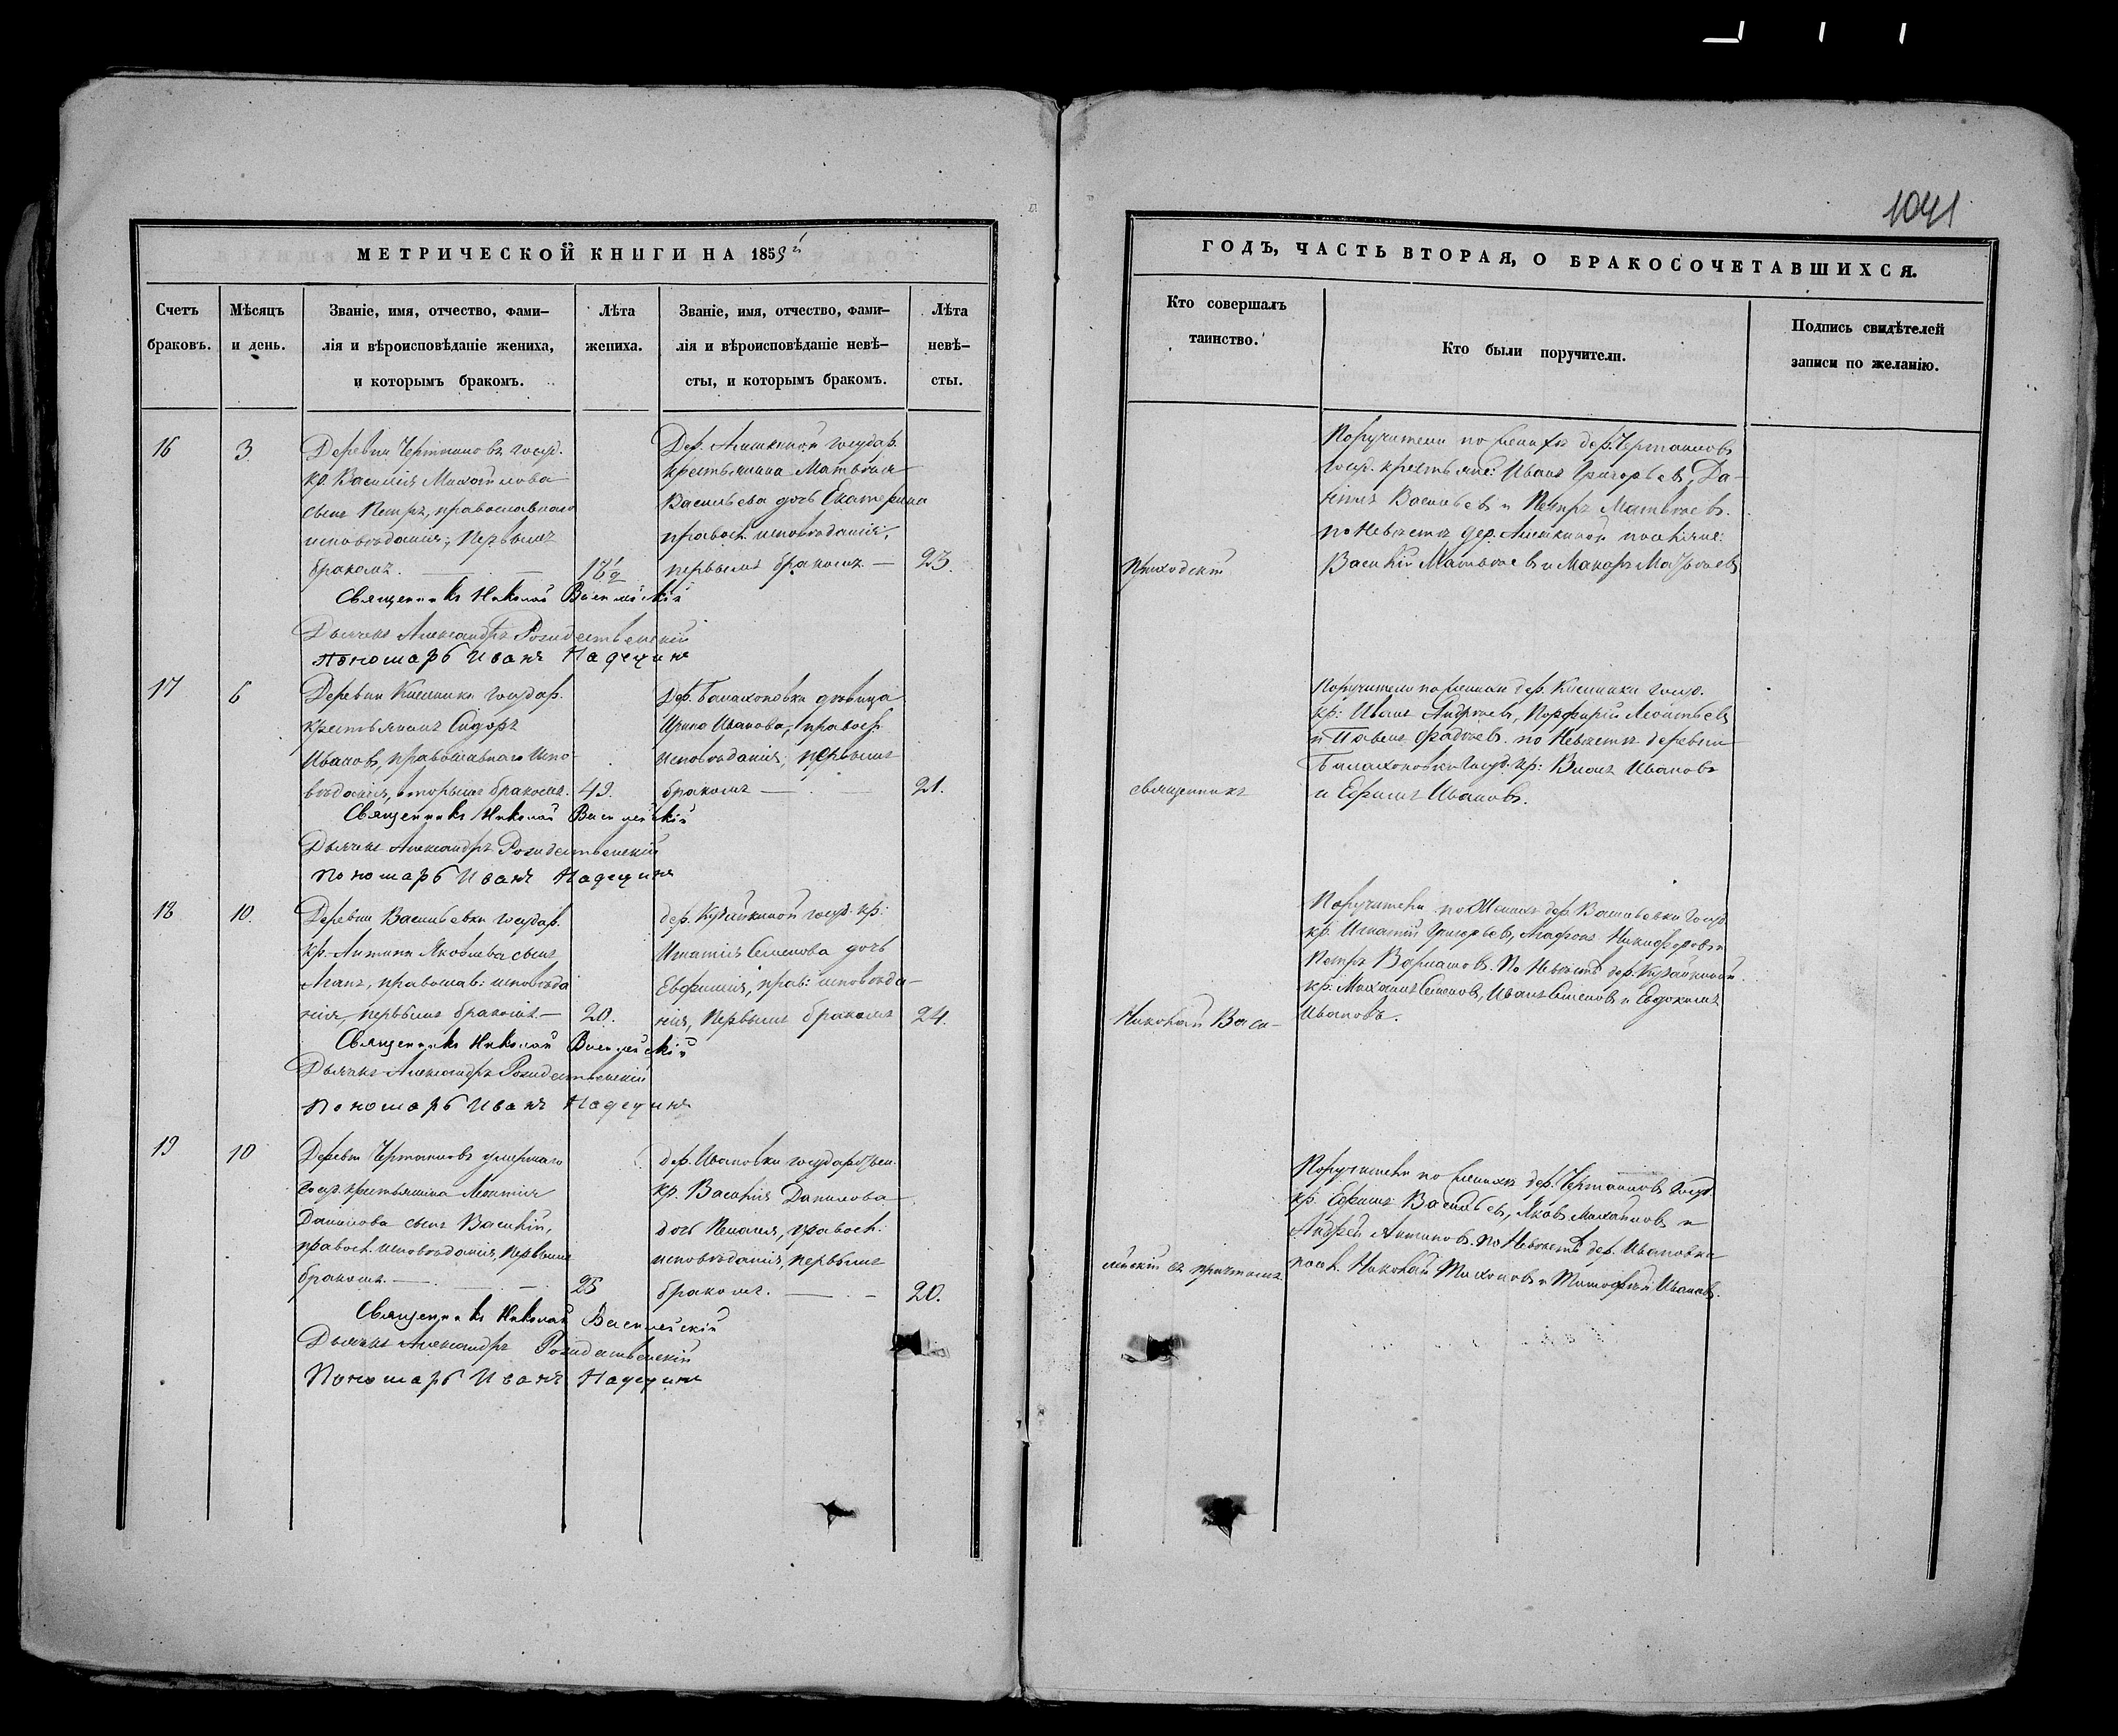 1041
МЕТРИЧЕСКОЙ КНИГИ НА 1859й
Счетъ браковъ.
Мѣсяцъ и день.
Званіе, имя, отчество, фами-
лія и вѣроисповѣданіе жениха,
и которымъ бракомъ.
Лѣта
жениха.
Званіе, имя, отчество, фами-
лія и вѣроисповѣданіе невѣ-
сты, и которымъ бракомъ.
Лѣта
невѣ-
сты.
16
3.
Деревни Чертановъ госуд.
кр. Василія Михайлова
сынъ Петръ, православнаго
исповѣданія, первымъ
бракомъ. — 18½
Дер. Аишкиной государ.
крестьянина Матвѣя
Васильева дочь Екатерина
правосл. исповѣданія,
первымъ бракомъ. — 23.
Священникъ Николай Васи
Дьячекъ Александръ Рождественскій
Пономарь Иванъ Надеция
17
6
Деревни государ.
крестьянинъ Сидоръ
Ивановъ, православнаго испо-
вѣданія, вторымъ бракомъ. 49.
Дер. Балахоновки дѣвица
Ирина Иванова, правосл.
исповѣданія, первымъ
бракомъ — 21.
Священникъ Николай
Дьячекъ Александръ Рождественскій
Пономарь Иванъ
18
10.
Деревни Васильевки государ.
кр. Антипа Яковлева сынъ
православ: исповѣда
нія, первымъ бракомъ. — 20.
дер. госуд. кр:
Игнатія Семенова дочь
Евфимія, прав: исповѣда-
нія, первымъ бракомъ 24.
Священникъ Николай
Дьячекъ Александръ Рождественскій
Пономарь Иванъ
19
10
Деревни Чертановъ умершаго
госуд. крестьянина Леонтія
Данилова сынъ Василій,
правосл. исповѣданія, первымъ
бракомъ. — 25
дер. Ивановки государствен.
кр. Василія Данилова
дочь Пелагея, правосл:
исповѣданія, первымъ
бракомъ. — 20.
Священникъ Николай
Дьячекъ Александръ Рождественскій
Пономарь Иванъ
ГОДЪ, ЧАСТЬ ВТОРАЯ, О БРАКОСОЧЕТАВШИХСЯ.
Кто совершалъ
таинство.
Кто были поручители.
Подпись свидѣтелей
записи по желанію.
Приходскій
священникъ
Николай Васи-
лейскій съ причтомъ
Поручители по женихѣ дер. Чертановъ
госуд. крестьяне: Иванъ Григорьевъ, Да-
нилъ Васильевъ и Петръ Матвѣевъ.
по Невѣстѣ дер. Аишкиной поселяне:
Василій Матвѣевъ и Макаръ Матвѣевъ
Поручители по женихѣ дер. госуд.
кр: Иванъ Андреевъ, Порфирій Леонтьевъ
и Павелъ Фадѣевъ. по Невѣстѣ деревни
Балахоновки госуд. кр: Иванъ Ивановъ
и Ефимъ Ивановъ.
Поручители по Женихѣ дер. Васильевки госуд
кр. Игнатій Григорьевъ, Агафонъ Никифоровъ и
Петръ Варламовъ. По Невѣстѣ дер.
кр: Михаилъ Семеновъ, Иванъ Семеновъ и Евдокимъ
Ивановъ.
Поручители по женихѣ дер. Чертановъ госуд.
кр. Ефимъ Васильевъ, Яковъ Михайловъ и
Андрей Антиповъ. по Невѣстѣ дер. Ивановки
посел. Николай Тихоновъ и Тимофей Ивановъ.